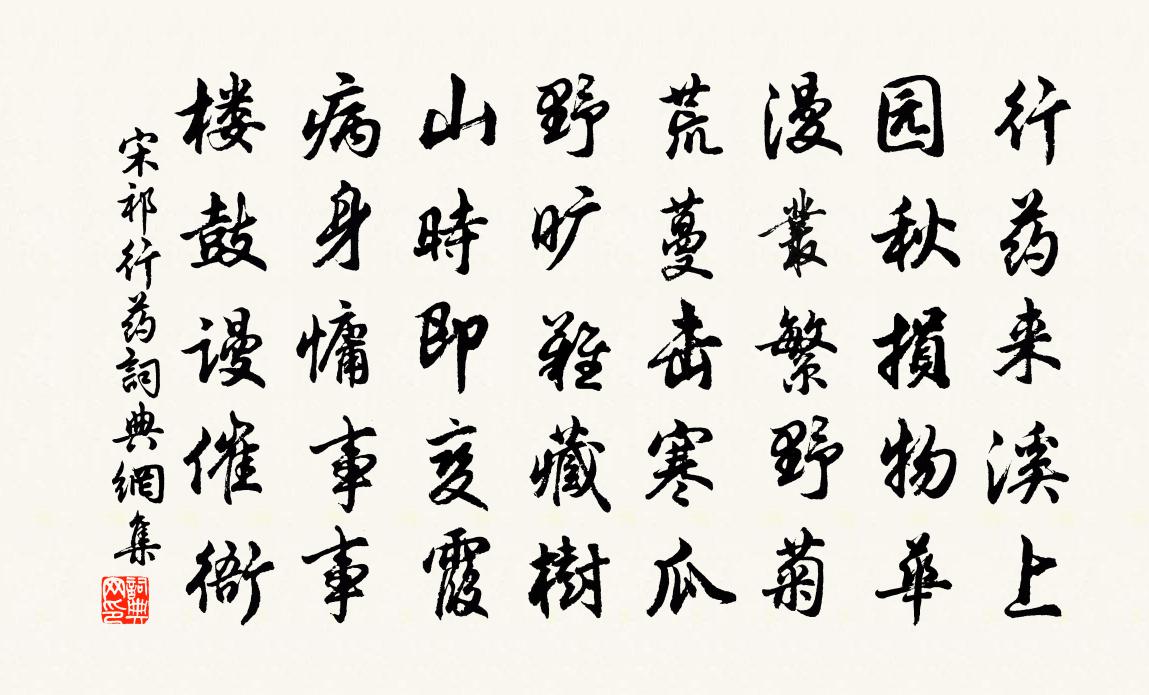 行药来溪上
园秋損物華
漫叢繁野菊
荒蔓击寒瓜
野旷難藏樹
山時即变霞
病身慵事事
楼鼓谩催衙
宋祁行药詞典網集
詞典网印